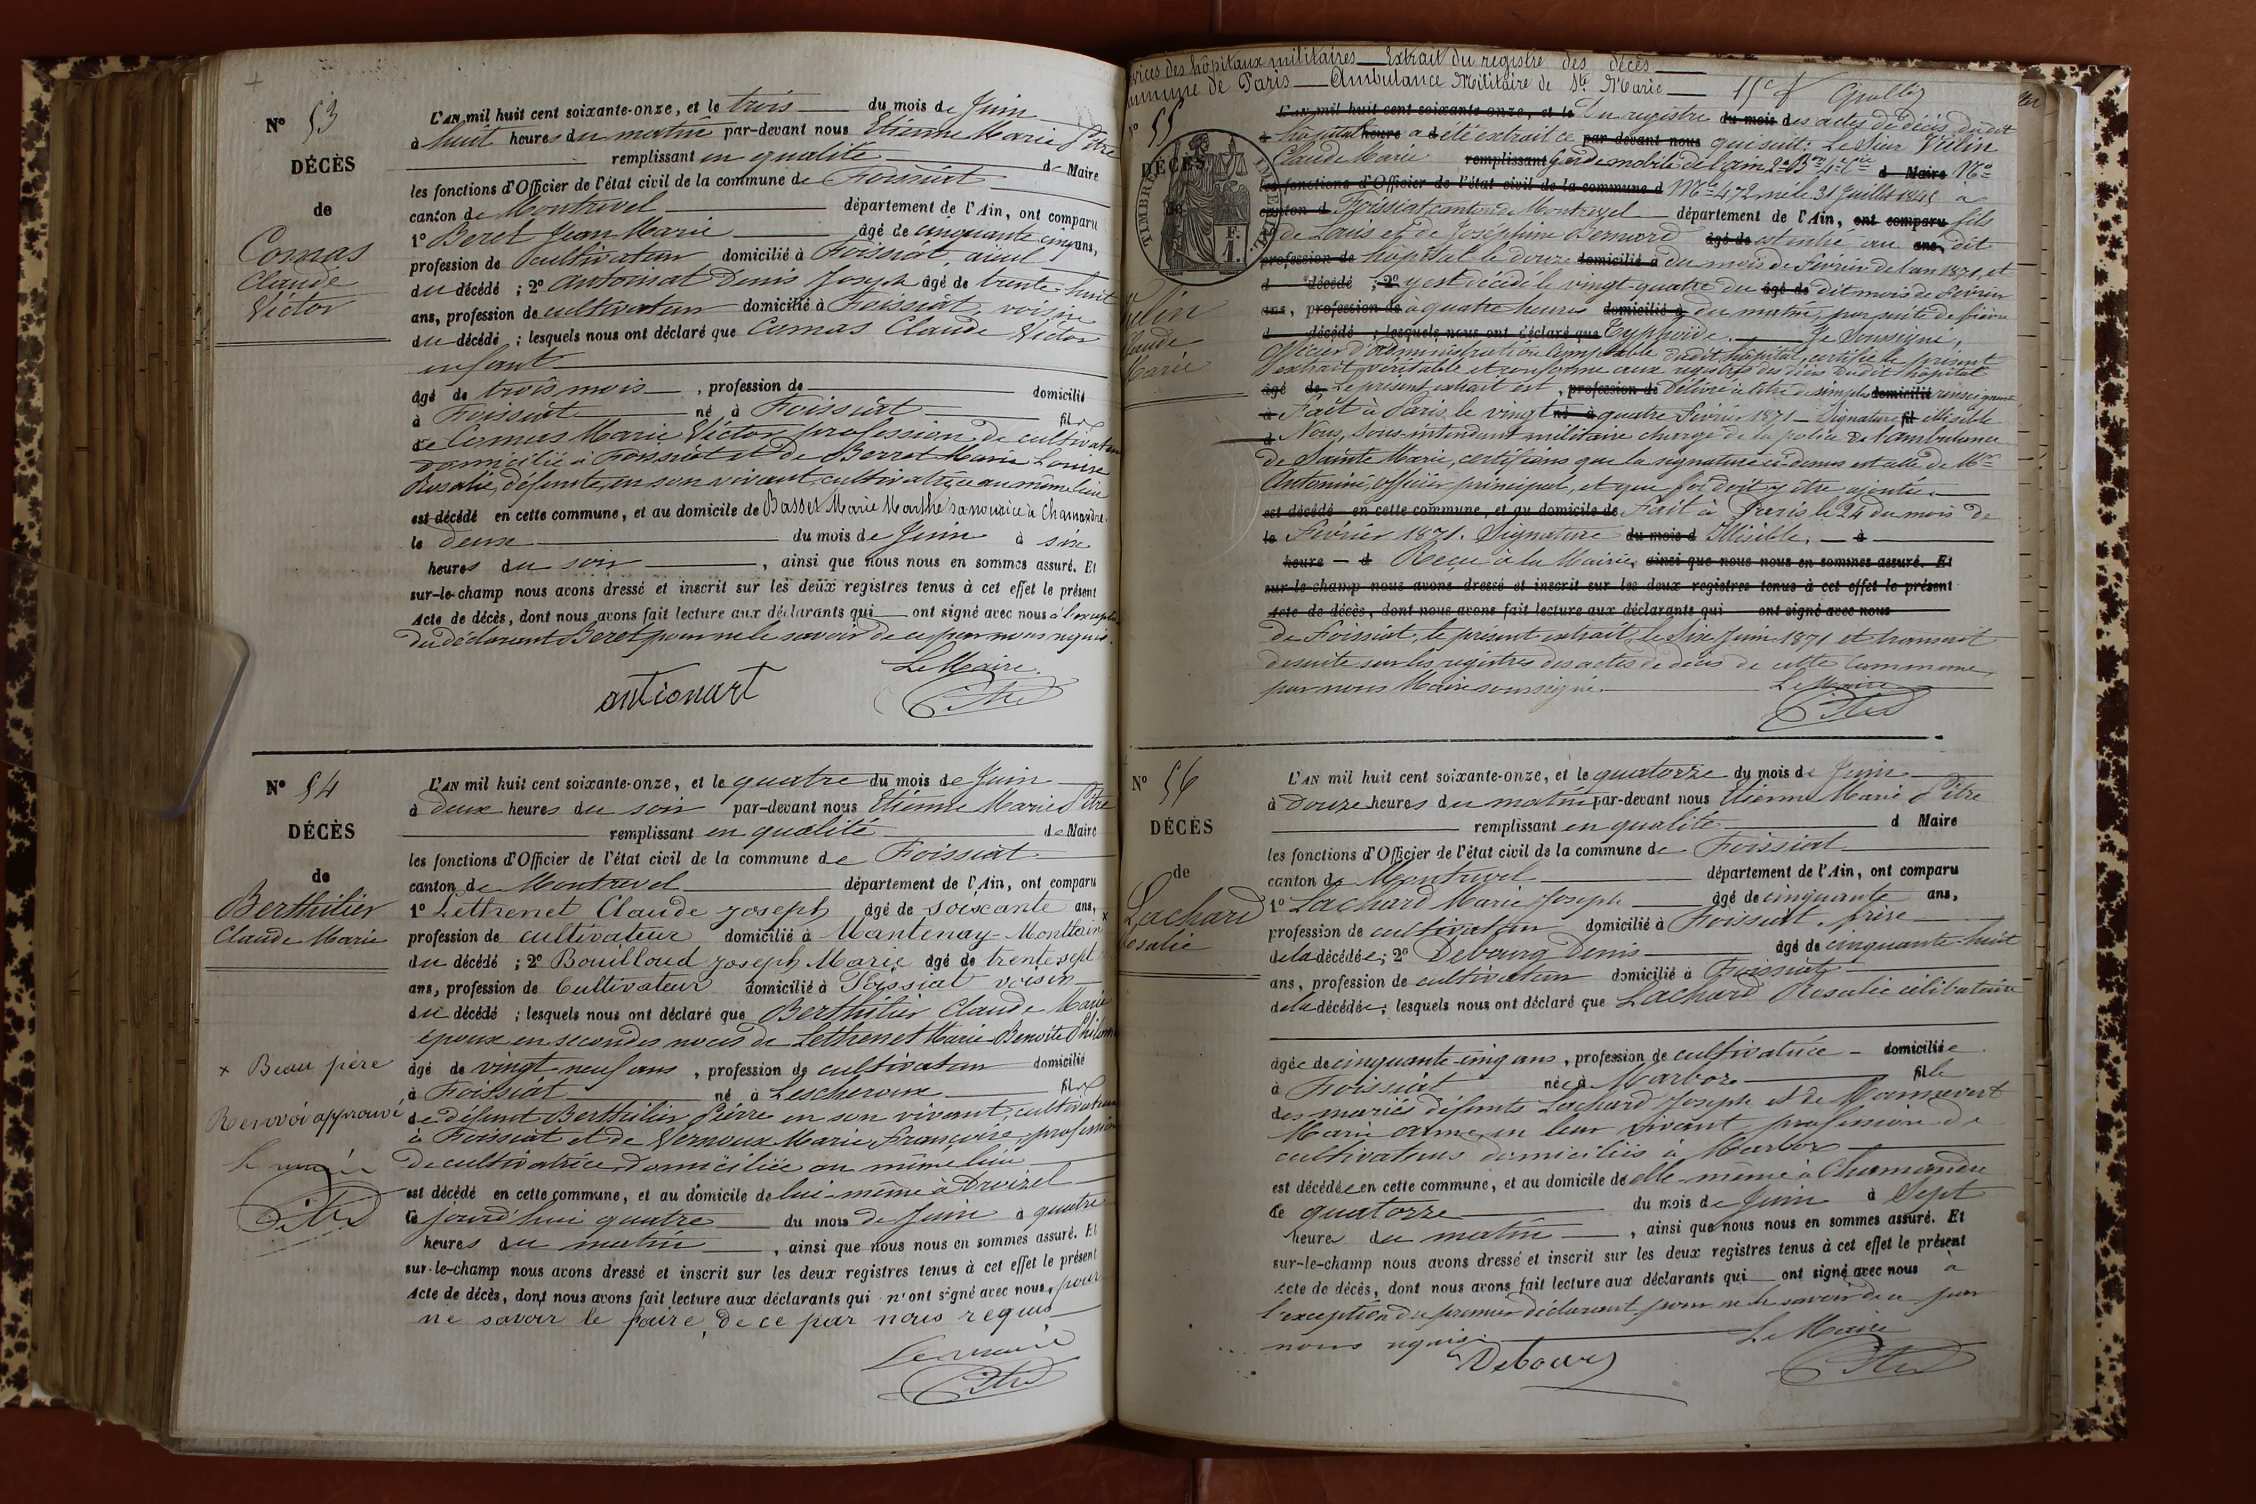 N° 53
DÉCÈS
de
Comas
Claude
Victor
L'AN mil huit cent soixante-onze, et le trois du mois de Juin
à huit heures du matin par-devant nous Etienne Marie Pitre
remplissant en qualité de Maire
les fonctions d'Officier de l'état civil de la commune de Foissiat
canton de Montrevel département de l'Ain, ont comparu
1° Beret Jean Marie âgé de cinquante cinq ans,
profession de cultivateur domicilié à Foissiat, aïeul
du décédé ; 2° antoinat Denis Joseph âgé de trente-huit
ans, profession de cultivateur domicilié à Foissiat, voisin
du décédé ; lesquels nous ont déclaré que Comas Claude Victor
enfant
âgé de trois mois, profession de domicilié
à Foissiat né à Foissiat fils
de Comas Marie Victor, profession de cultivateur
domicilié à Foissiat et de Berret Marie Louise
Rosalie, défunte, en son vivant, cultivatrice au même lieu
est décédé en cette commune, et au domicile de Basset Marie Marthe sa nourice à Chamandre
le deux du mois de Juin à six
heures du soir, ainsi que nous nous en sommes assuré. Et
sur-le-champ nous avons dressé et inscrit sur les deux registres tenus à cet effet le présent
Acte de décès, dont nous avons fait lecture aux déclarants qui ont signé avec nous à l'exception
du déclarant Beret pour ne le savoir de ce par nous requis.
Le Maire
antionart
Pitre
N° 54
DÉCÈS
de
Berthilier
Claude Marie
x Beau père
Renvoi approuvé
Le maire
Pitre
L'AN mil huit cent soixante-onze, et le quatre du mois de Juin
à deux heures du soir par-devant nous Etienne Marie Pitre
remplissant en qualité de Maire
les fonctions d'Officier de l'état civil de la commune de Foissiat
canton de Montrevel département de l'Ain, ont comparu
1° Lethenet Claude joseph âgé de soixante ans, x
profession de cultivateur domicilié à Mantenay-Montlin
du décédé ; 2° Bouilloud joseph Marie âgé de trente sept
ans, profession de Cultivateur domicilié à Foissiat voisin
du décédé ; lesquels nous ont déclaré que Berthilier Claude Marie
époux en secondes noces de Lethenet Marie-Benoite Philom
âgé de vingt-neuf ans, profession de cultivateur domicilié
à Foissiat né à Lescheroux fils
de défunt Berthilier Pierre en son vivant, cultivateur
à Foissiat et de Vernoux Marie Françoise, profession
de cultivatrice, domiciliée au même lieu
est décédé en cette commune, et au domicile de lui-même à Droizel
le jourd'hui quatre du mois de Juin à quatre
heures du matin, ainsi que nous nous en sommes assuré. Et
sur-le-champ nous avons dressé et inscrit sur les deux registres tenus à cet effet le présent
Acte de décès, dont nous avons fait lecture aux déclarants qui n'ont signé avec nous, pour
ne savoir le faire, de ce par nous requis
Le maire
Pitre
vices des hôpitaux militaires Extrait du registre des décès
mmune de Paris Ambulance Militaire de Ste Marie
N° 55
DÉCÈS
de
TIMBRE IMPÉRIAL
Claude
Marie
L'AN mil huit cent soixante-onze, et le Du registre du mois des actes de décès dudit
à hôpital heure a d été extrait ce par-devant nous que suit : Le Sieur Vuelin
Claude Marie remplissant garde mobile de l'ain 2e Bon 4e Cie d Maire No
les fonctions d'Officier de l'état civil de la commune d Mle 472, né le 31 Juillet à
canton d Foissiat, canton de Montrevel département de l'Ain, ont comparu fils
de Louis et de Joséphine Bernard âgé de est entré au ans, dit
profession de hôpital le douze domicilié à du mois de Février de l'an 1871, et
d décédé ; 2° y est décédé le vingt-quatre du âgé de dit mois de Février
ans, profession de à quatre heures domicilié à du matin, par suite de fièvre
d décédé ; lesquels nous ont déclaré que Typhoïde. Je Soussigné,
Officier d'administration Comptable dudit hôpital, certifie le présent
extrait véritable et conforme aux registres des décès dudit hôpital
âgé de Le présent extrait est, profession de Délivré à titre de simple domicilié renseignement
à Fait à Paris, le vingt né à quatre Février 1871 Signature fil illisible
d Nous, Sous-intendant militaire chargé de la police de l'ambulance
de Sainte Marie, certifions que la signature ci-dessus est celle de Mr
Antonini, officier principal, et que foi doit y être ajoutée.
est décédé en cette commune, et au domicile de Fait à Paris le 24 du mois de
le Février 1871. Signature du mois d Illisible. à
heure d Reçu à la Mairie, ainsi que nous nous en sommes assuré. Et
sur-le-champ nous avons dressé et inscrit sur les deux registres tenus à cet effet le présent
Acte de décès, dont nous avons fait lecture aux déclarants qui ont signé avec nous
de Foissiat, le présent extrait, le Six Juin 1871 et transcrit
desuite sur les registres des actes de décès de cette Commune
par nous Maire soussigné.
Le Maire
Pitre
N° 56
DÉCÈS
de
Lachard
Rosalie
L'AN mil huit cent soixante-onze, et le quatorze du mois de Juin
à douze heures du matin par-devant nous Etienne Marie Pitre
remplissant en qualité d Maire
les fonctions d'Officier de l'état civil de la commune de Foissiat
canton de Montrevel département de l'Ain, ont comparu
1° Lachard Marie Joseph âgé de cinquante ans,
profession de cultivateur domicilié à Foissiat, frère
de la décédée ; 2° Debourg Denis âgé de cinquante-huit
ans, profession de cultivateur domicilié à Foissiat
de la décédée ; lesquels nous ont déclaré que Lachard Rosalie célibataire
âgée de cinquante-cinq ans, profession de cultivatrice domiciliée
à Foissiat née à Marboz fille
des mariés défunts Lachard Joseph et de
Marie Anne, en leur vivant profession de
cultivateurs domiciliés à Marboz
est décédée en cette commune, et au domicile de elle-même à Chamandre
le quatorze du mois de Juin à Sept
heures du matin, ainsi que nous nous en sommes assuré. Et
sur-le-champ nous avons dressé et inscrit sur les deux registres tenus à cet effet le présent
Acte de décès, dont nous avons fait lecture aux déclarants qui ont signé avec nous à
l'exception du premier déclarant pour ne le savoir de ce par
nous requis.
Le Maire
Debourg
Pitre